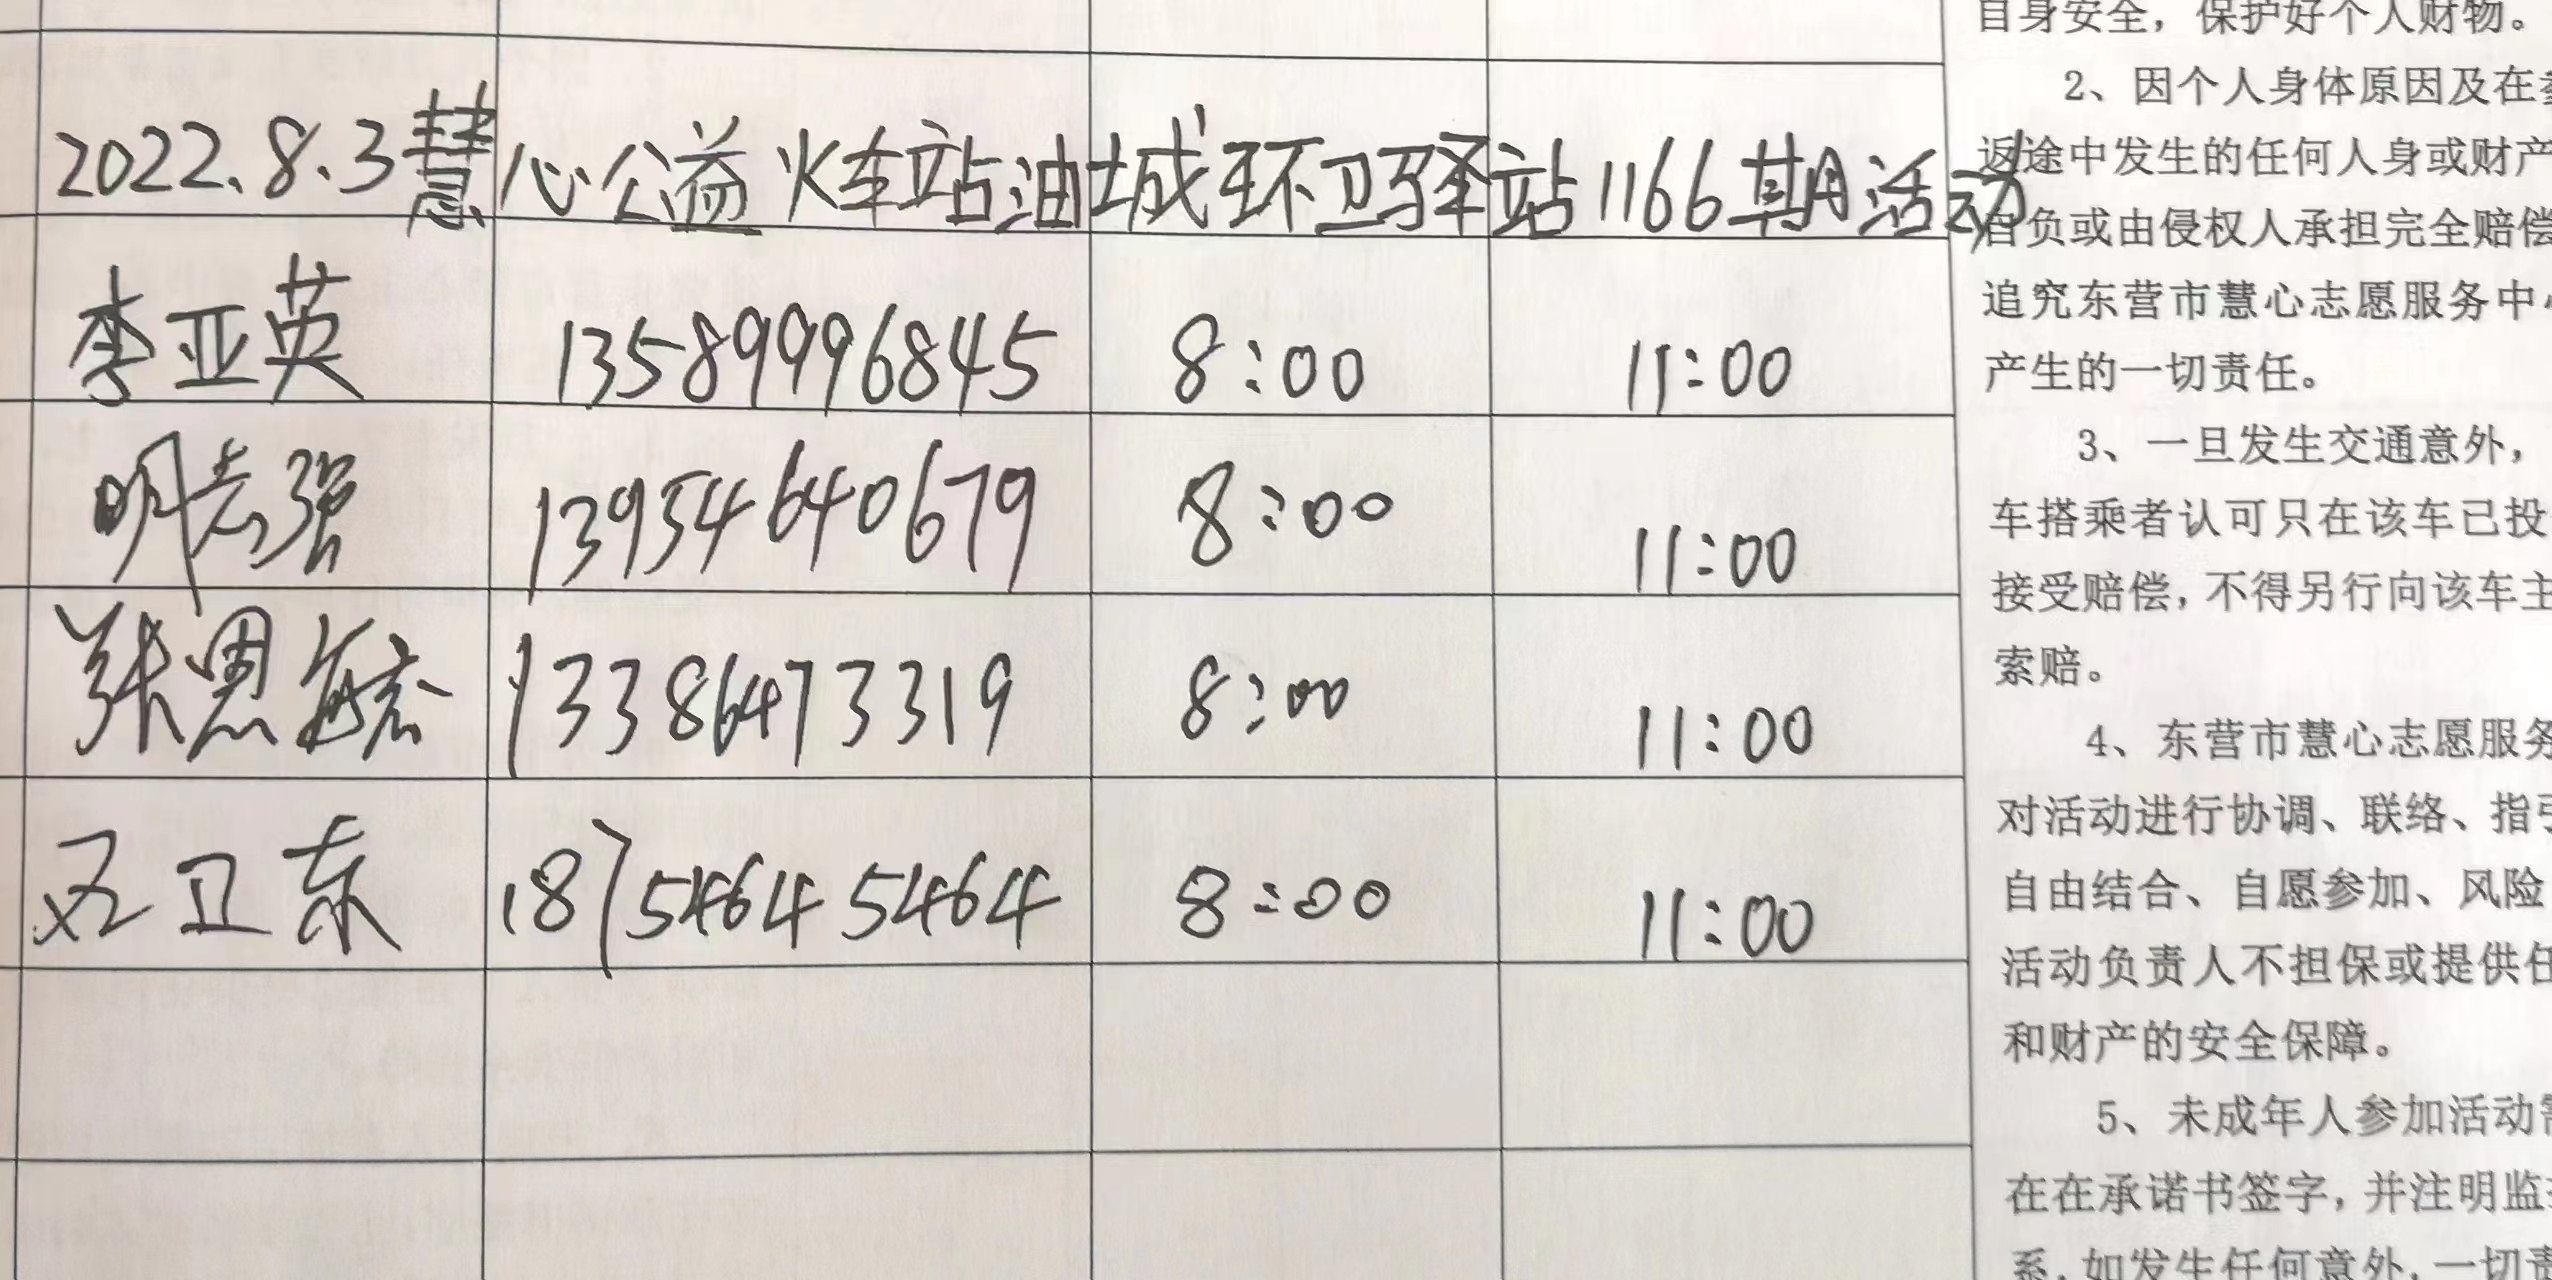 2022.8.3慧心公益火车站油城环卫驿站1166期活动
李亚英 13589996845 8:00 11:00
明志强 13954640679 8:00 11:00
张恩毓 13386473319 8:00 11:00
卫东 18754645464 8:00 11:00
自身安全，保护好个人财物。
2、因个人身体原因及在
返途中发生的任何人身或财产
自负或由侵权人承担完全赔偿
追究东营市慧心志愿服务中心
产生的一切责任。
3、一旦发生交通意外，
车搭乘者认可只在该车已投
接受赔偿，不得另行向该车主
索赔。
4、东营市慧心志愿服务
对活动进行协调、联络、指引
自由结合、自愿参加、风险
活动负责人不担保或提供任
和财产的安全保障。
5、未成年人参加活动需
在在承诺书签字，并注明监
系，如发生任何意外，一切责